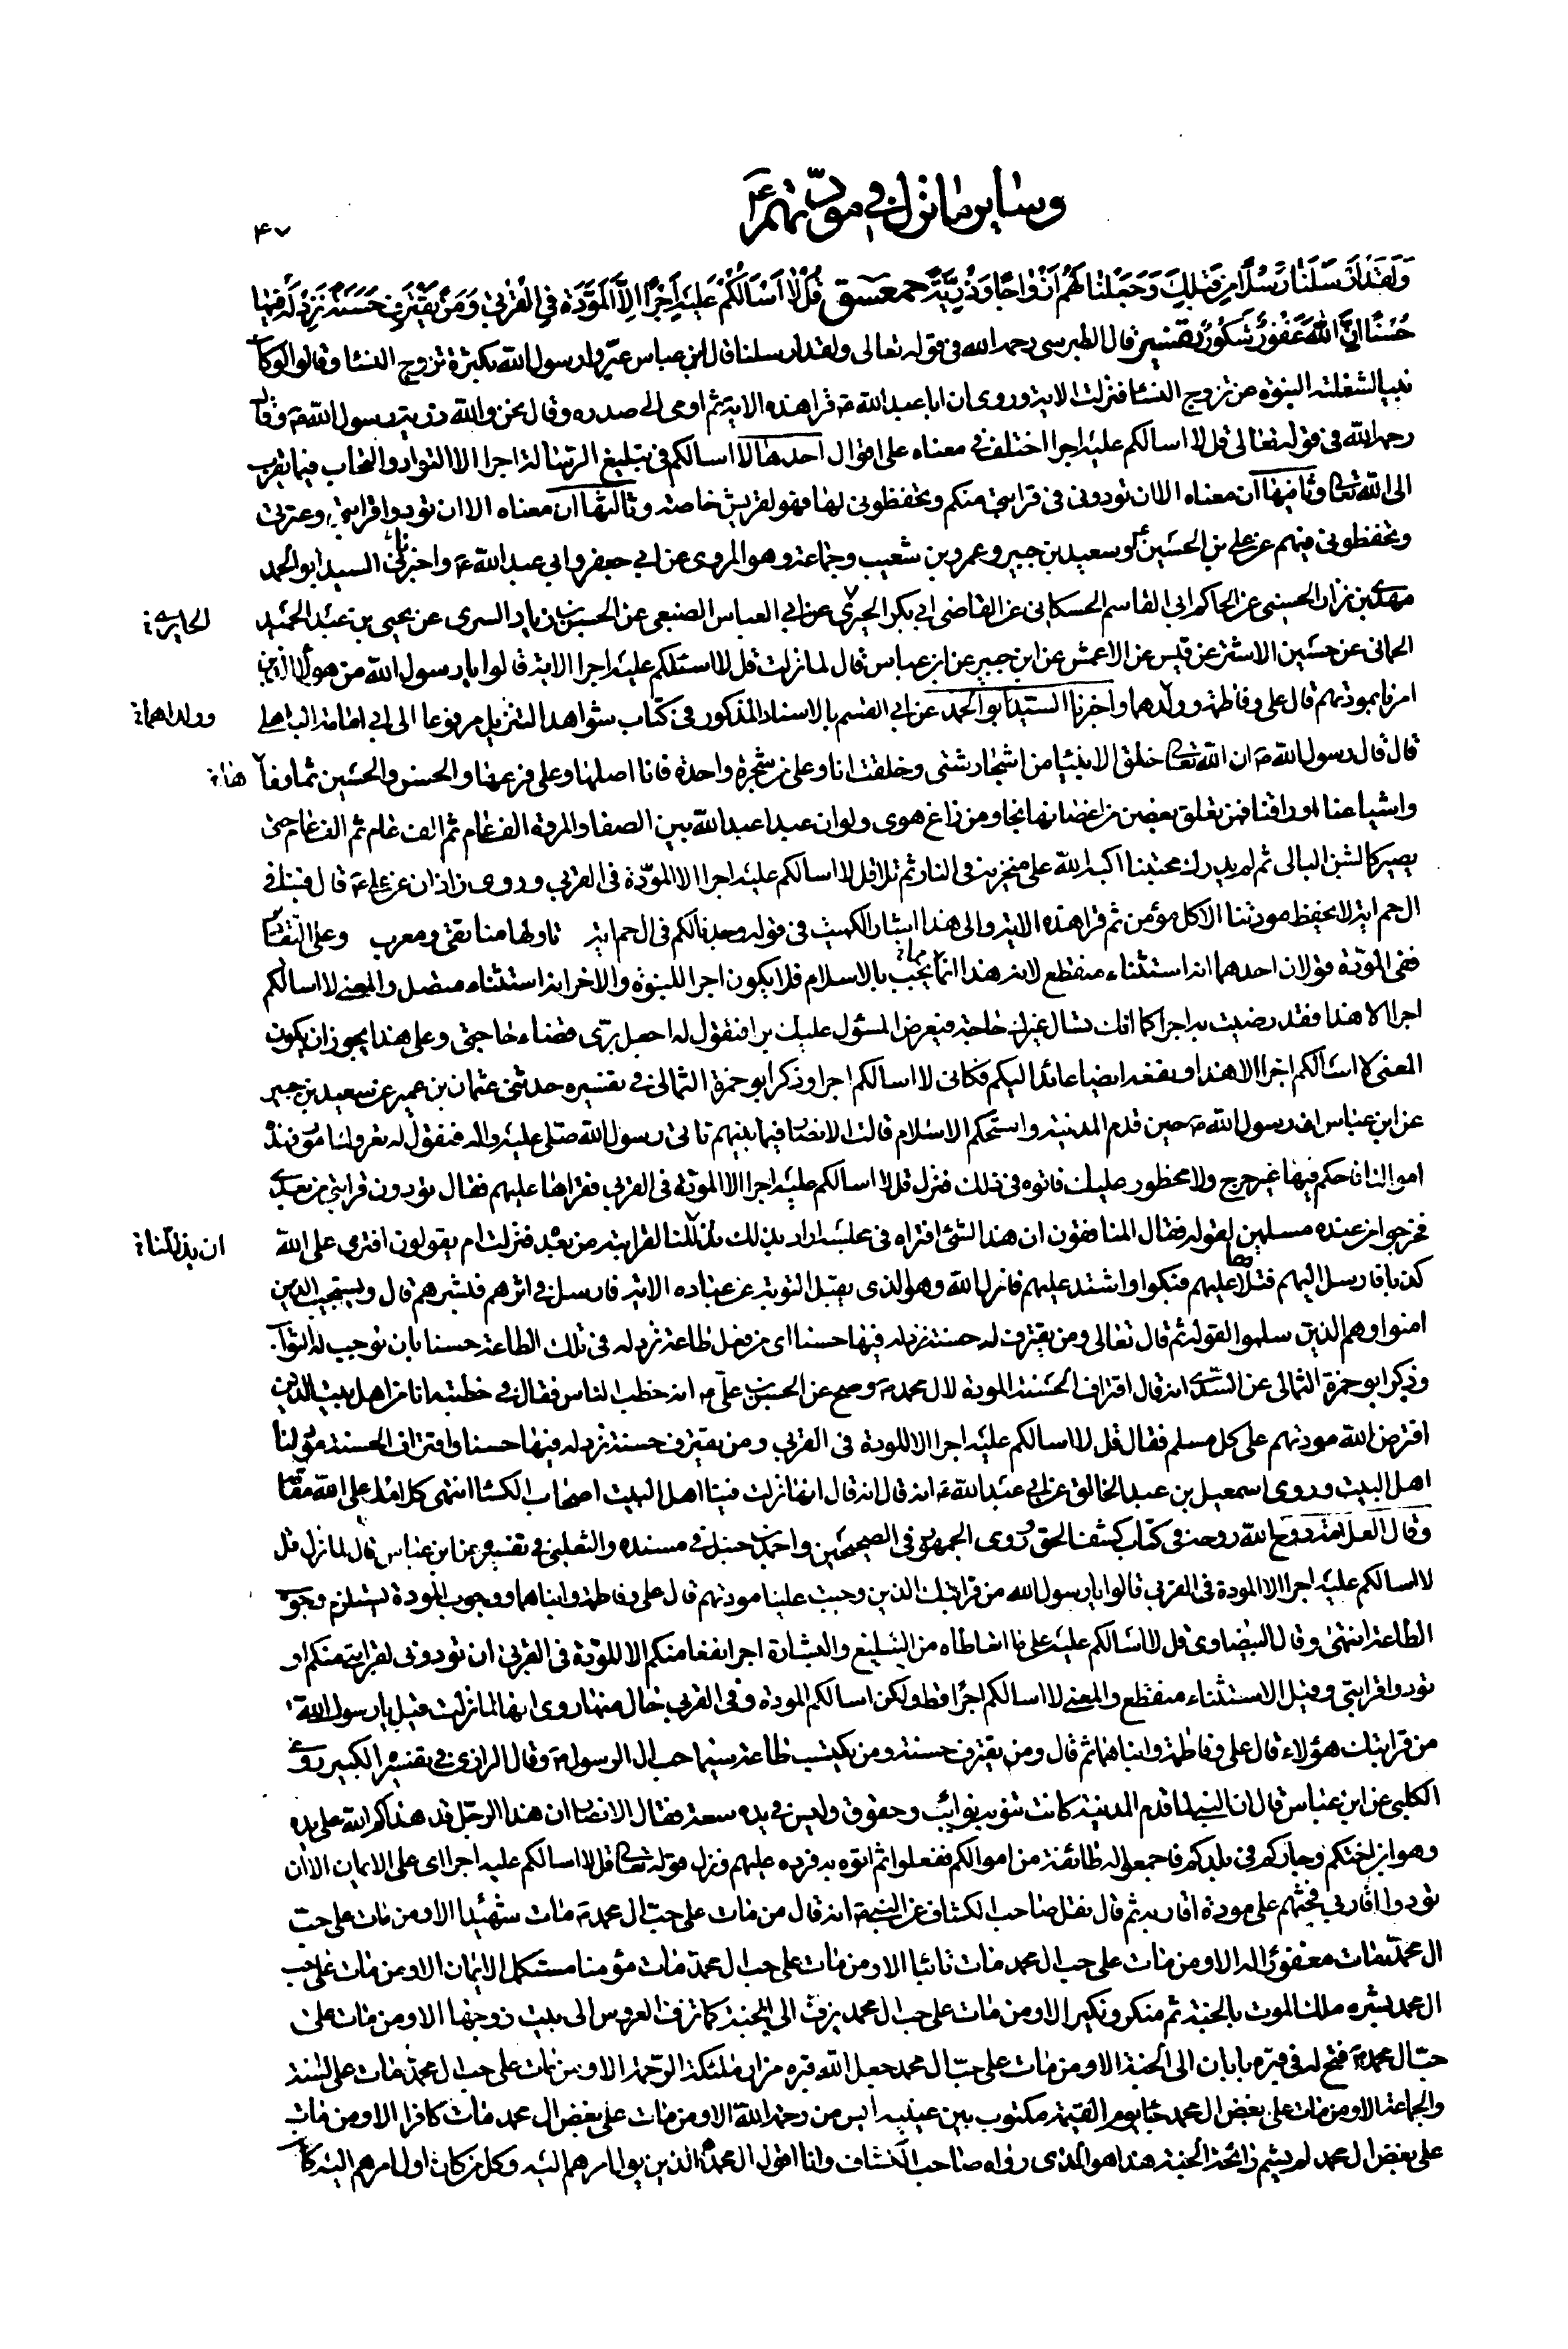 وساير ما نزل في مودّتهم ع
۴۷
وَلَقَدْ اَرْسَلْنَا رُسُلًا مِنْ قَبْلِكَ وَجَعَلْنَا لَهُمْ اَزْوَاجًا وَذُرِّيَّةً حمعسق قُلْ لَا اَسْاَلُكُمْ عَلَيْهِ اَجْرًا اِلَّا الْمَوَدَّةَ فِي الْقُرْبى وَمَنْ يَقْتَرِفْ حَسَنَةً نَزِدْ لَهُ فِيهَا
حُسْنًا اِنَّ اللهَ غَفُورٌ شَكُورٌ تفسير قال الطبرسي رحمه الله في قوله تعالى ولقد ارسلنا قال ابن عباس عيّروا رسول الله بكثرة تزويج النساء وقالوا لو كان
نبيا لشغلته النبوة عن تزويج النساء فنزلت الاية وروى ان ابا عبد الله ع قرا هذه الاية ثم اومى الى صدره وقال نحن والله ذرية رسول الله ص وقال
رحمه الله في قوله تعالى قل لا اسالكم عليه اجرا اختلف في معناه على اقوال احدها لا اسالكم في تبليغ الرسالة اجرا الا التواد والتحاب فيما يقرب
الى الله تعالى وثانيها ان معناه الا ان تودوني في قرابتي منكم وتحفظوني لها فهو لقريش خاصة وثالثها ان معناه الا ان تودوا قرابتي وعترتي
وتحفظوني فيهم عن علي بن الحسين ع وسعيد بن جبير وعمرو بن شعيب وجماعة وهو المروى عن ابي جعفر وابي عبد الله ع واخبرنا السيد ابو الحمد
مهدي بن نزار الحسيني عن الحاكم ابي القاسم الحسكاني عن القاضي ابي بكر الحيري عن ابي العباس الضبعي عن الحسن بن زياد السرى عن يحيى بن عبد الحميد
الحايري :
الحماني عن حسين الاشتر عن قيس عن الاعمش عن ابن جبير عن ابن عباس قال لما نزلت قل لا اسئلكم عليه اجرا الاية قالوا يا رسول الله من هولاء الذين
امرنا بمودتهم قال علي وفاطمة وولدهما واخبرنا السيد ابو الحمد عن ابي القسم بالاسناد المذكور في كتاب شواهد التنزيل مرفوعا الى ابي امامة الباهلي
وولداهما :
قال قال رسول الله ص ان الله تعالى خلق الانبياء من اشجار شتى وخلقت انا وعلي من شجرة واحدة فانا اصلها وعلي فرعها والحسن والحسين ثمارها
واشياعنا اوراقنا فمن تعلق بغصن من اغصانها نجا ومن زاغ هوى ولو ان عبدا عبد الله بين الصفا والمروة الف عام ثم الف عام ثم الف عام حتى
يصير كالشن البالي ثم لم يدرك محبتنا اكبه الله على منخريه في النار ثم تلا قل لا اسالكم عليه اجرا الا المودّة في القربى وروى زاذان عن علي ع قال فينا في
ال حم اية لا يحفظ مودتنا الا كل مؤمن ثم قرا هذه الاية والى هذا اشار الكميت في قوله وجدنا لكم في ال حم اية تاولها منا تقي ومعرب وعلى التقادير
ففي المودّة قولان احدهما انه استثناء منقطع لانه هذا انما يجب بالاسلام فلا يكون اجرا للنبوة والاخر انه استثناء متصل والمعنى لا اسالكم
اجرا الا هذا فقد رضيت به اجرا كما انك تسال غيرك حاجة فيعرض المسؤل عليك برا فتقول له اجعل برّى قضاء حاجتي وعلى هذا يجوز ان يكون
المعنى لا اسالكم اجرا الا هذا ونفعه ايضا عائد اليكم فكاني لا اسالكم اجرا وذكر ابو حمزة الثمالي في تفسيره حدثني عثمان بن عمير عن سعيد بن جبير
عن ابن عباس ان رسول الله ص حين قدم المدينة واستحكم الاسلام قالت الانصار فيما بينهم ناتي رسول الله صلى عليه واله فنقول له تعروك امور فهذه
اموالنا فاحكم فيها غير حرج ولا محظور عليك فاتوه في ذلك فنزل قل لا اسالكم عليه اجرا الا المودة في القربى فقراها عليهم فقال تودون قرابتي من بعدي
فخرجوا من عنده مسلمين لقوله فقال المنافقون ان هذا لشئ افتراه في مجلسه اراد بذلك يذللنا لقرابته من بعد فنزلت ام يقولون افترى على الله
ان يذللنا :
كذبا فارسل اليهم فتلاها عليهم فبكوا واشتد عليهم فانزل الله وهو الذي يقبل التوبة عن عباده الاية فارسل في اثرهم فبشرهم قال ويستجيب الذين
امنوا وهم الذين سلموا لقوله ثم قال تعالى ومن يقترف له حسنة نزد له فيها حسنا اى من فعل طاعة نزد له في تلك الطاعة حسنا بان نوجب له الثواب
وذكر ابو حمزة الثمالي عن السّدّي انه قال اقتراف الحسنة المودة لال محمد ص وصح عن الحسن بن علي ع انه خطب الناس فقال في خطبته انا من اهل بيت الذين
افترض الله مودتهم على كل مسلم فقال قل لا اسالكم عليه اجرا الا المودة في القربى ومن يقترف حسنة نزد له فيها حسنا واقتراف الحسنة مودتنا
اهل البيت وروى اسمعيل بن عبد الخالق عن ابي عبد الله ع انه قال انه قال انها نزلت فينا اهل البيت اصحاب الكساء انتهى كلامه اعلى الله مقامه
وقال العلامة روح الله روحه في كتاب كشف الحق روى الجمهور في الصحيحين واحمد بن حنبل في مسنده والثعلبي في تفسيره عن ابن عباس قال لما نزل قل
لا اسالكم عليه اجرا الا المودة في القربى قالوا يا رسول الله من قرابتك الذين وجبت علينا مودتهم قال علي وفاطمة وابناهما ووجوب المودة تستلزم وجوب
الطاعة انتهى وقال البيضاوى قل لا اسالكم عليه على ما اتعاطاه من التبليغ والبشارة اجرا نفعا منكم الا المودّة في القربى ان تودوني لقرابتي منكم او
تودوا قرابتي وقيل الاستثناء منقطع والمعنى لا اسالكم اجرًا قط ولكن اسالكم المودة وفي القربى حال منها روى انها لما نزلت قيل يا رسول الله
من قرابتك هؤلاء قال علي وفاطمة وابناهما ثم قال ومن يقترف حسنة ومن يكتسب طاعة سيما حب ال الرسول ص وقال الرازي في تفسيره الكبير روى
الكلبي عن ابن عباس قال ان النبي لما قدم المدينة كانت تنوبه نوائب وحقوق وليس في يده سعة فقال الانصار ان هذا الرجل قد هداكم الله على يده
وهو ابن اختكم وجاركم في بلدكم فاجمعوا له طائفة من اموالكم ففعلوا ثم اتوه به فرده عليهم ونزل قوله تعالى قل لا اسالكم عليه اجرا اى على الايمان الا ان
تودوا اقاربي فحثهم على مودة اقاربه ثم قال نقل صاحب الكشاف عن النبي ص انه قال من مات على حب ال محمد ص مات شهيدا الا ومن مات على حبّ
ال محمد مات مغفورًا له الا ومن مات على حب ال محمد مات تائبا الا ومن مات على حب ال محمد مات مؤمنا مستكمل الايمان الا ومن مات على حب
ال محمد بشره ملك الموت بالجنة ثم منكر ونكير الا ومن مات على حب ال محمد يزف الى الجنة كما تزف العروس الى بيت زوجها الا ومن مات على
حبّ ال محمد ص فتح له في قبره بابان الى الجنة الا ومن مات على حبّ ال محمد جعل الله قبره مزار ملئكة الرّحمة الا ومن مات على حب ال محمد مات على السنة
والجماعة الا ومن مات على بغض ال محمد جاء يوم القيمة مكتوب بين عينيه ايس من رحمة الله الا ومن مات على بغض ال محمد مات كافرا الا ومن مات
على بغض ال محمد لم يشم رائحة الجنة هذا هو الذي رواه صاحب الكشاف وانا اقول ال محمد هم الذين يؤل امرهم اليه وكل من كان اول امرهم اليه كان